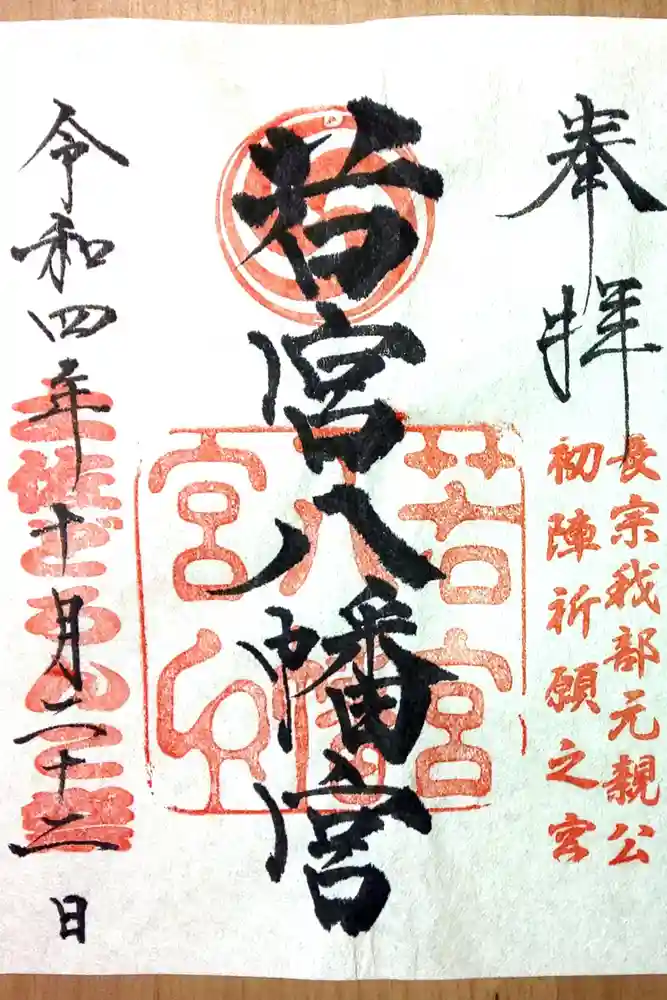 奉拝
長宗我部元親公
初陣祈願之宮
若宮八幡宮
若宮
八幡
宮印
令和四年十月二十二日